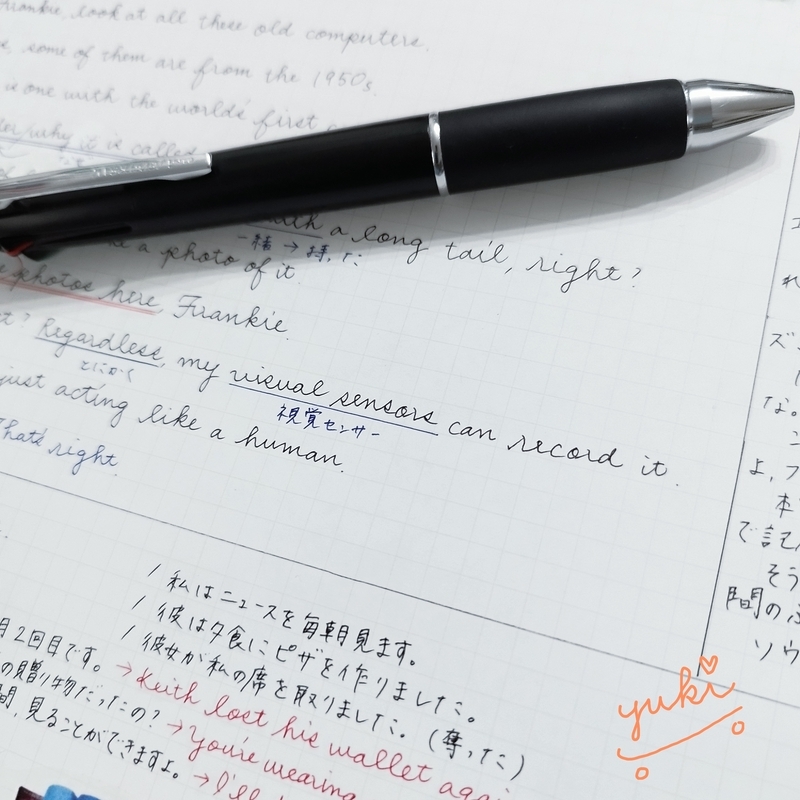 Frankie, look at all these old computers.
some of them are from the 1950s.
is one with the world's first
why it is called
with a long tail, right?
一緒 → 持った
a photo of it.
photos here, Frankie.
Regardless, my visual sensors can record it.
とにかく
視覚センサー
just acting like a human.
That's right.
/ 私はニュースを毎朝見ます。
/ 彼は夕食にピザを作りました。
/ 彼女が私の席を取りました。(奪った)
月2回目です。 → Keith lost his wallet again
の贈り物だったの? → You're wearing
間、見ることができますよ。 → I'll
な。
よ、フ
本
で記
そう
間の
ソウ
yuki